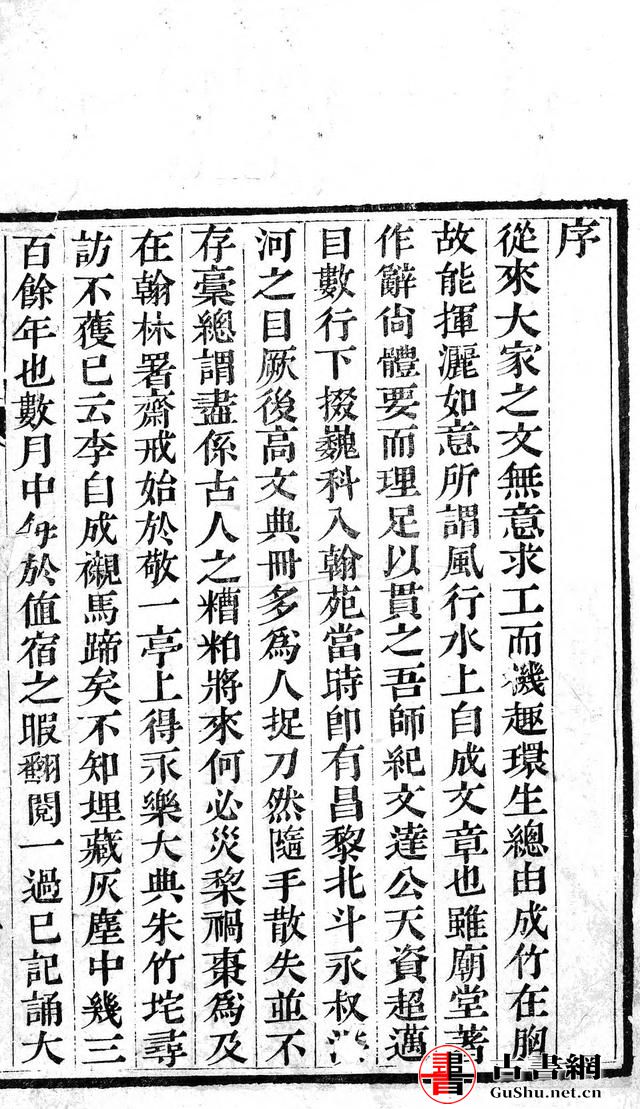 序
從來大家之文無意求工而機趣環生總由成竹在胸
故能揮灑如意所謂風行水上自成文章也雖廟堂著
作辭尙體要而理足以貫之吾師紀文達公天資超邁
目數行下掇巍科入翰苑當時即有昌黎北斗永叔
河之目厥後高文典冊多爲人捉刀然隨手散失並不
存稾總謂盡係古人之糟粕將來何必災棃禍棗爲及
在翰林署齋戒始於敬一亭上得永樂大典朱竹垞尋
訪不獲已云李自成襯馬蹄矣不知埋藏灰塵中幾三
百餘年也數月中每於值宿之暇翻閱一過已記誦大
書 古書網
GuShu.net.cn